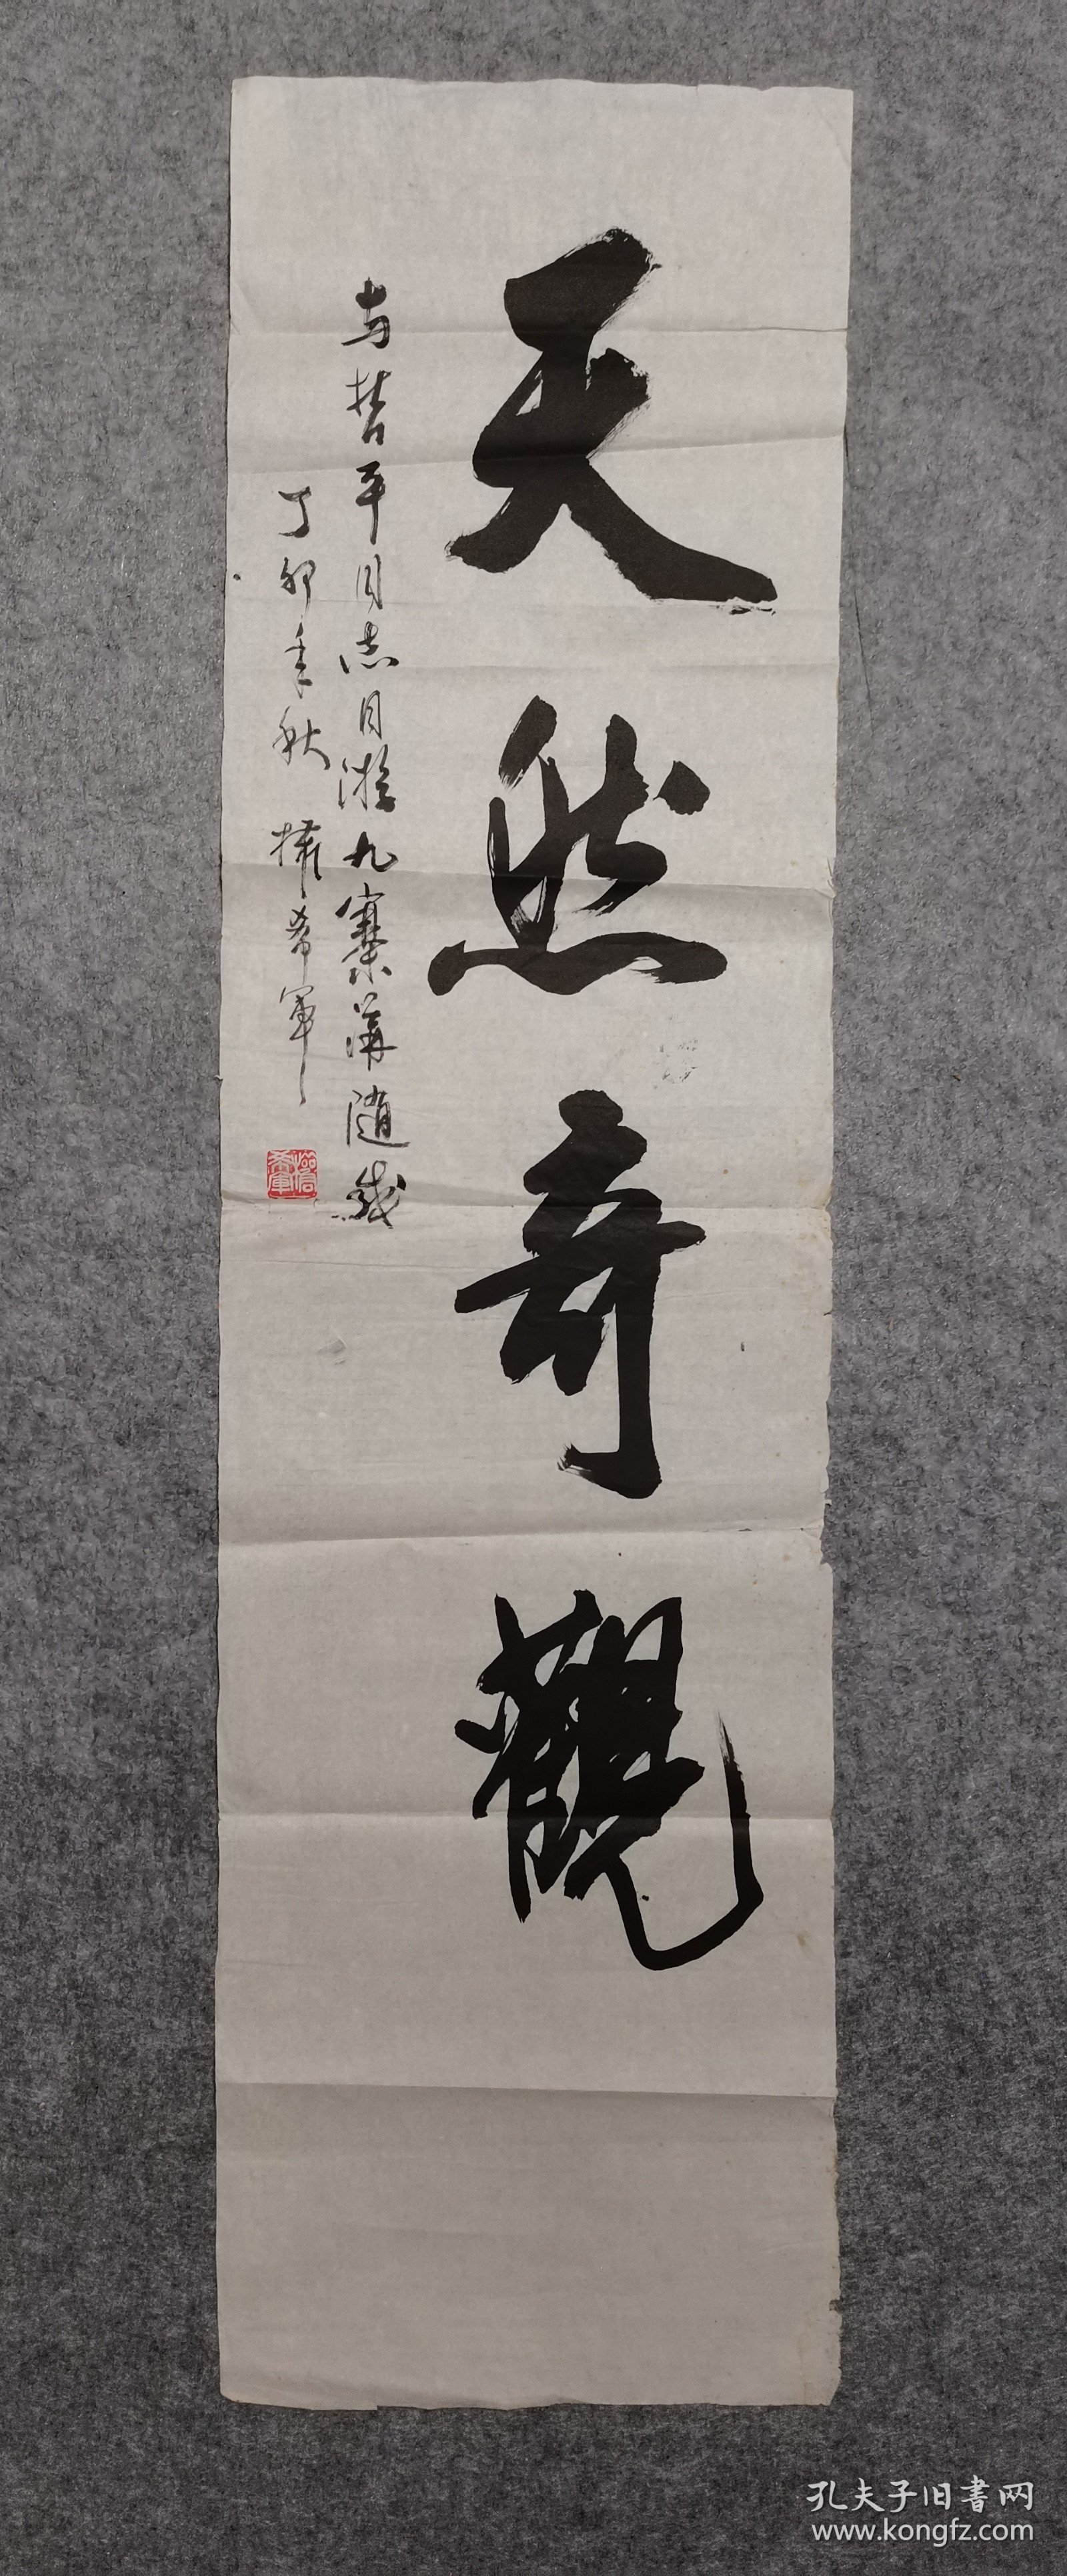 天然奇觀
与哲平同志同游九寨溝随感
丁卯年秋 希軍
孔夫子旧書网
www.kongfz.com